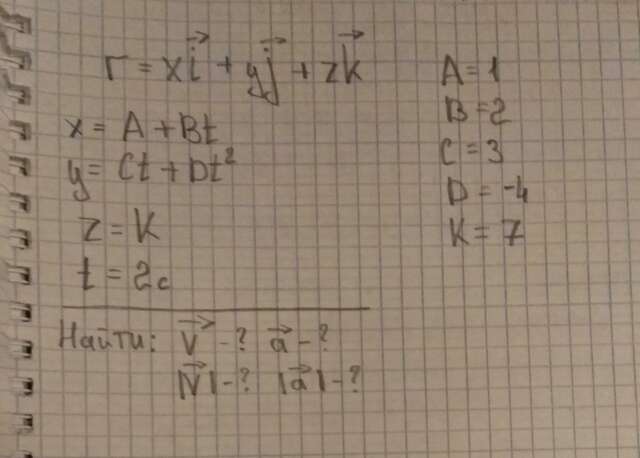 r = xi⃗ + yj⃗ + zk⃗
x = A + Bt
y = Ct + Dt²
z = K
t = 2c
A = 1
B = 2
C = 3
D = -4
K = 7
Найти: V⃗ - ? a⃗ - ?
|V⃗| - ? |a⃗| - ?